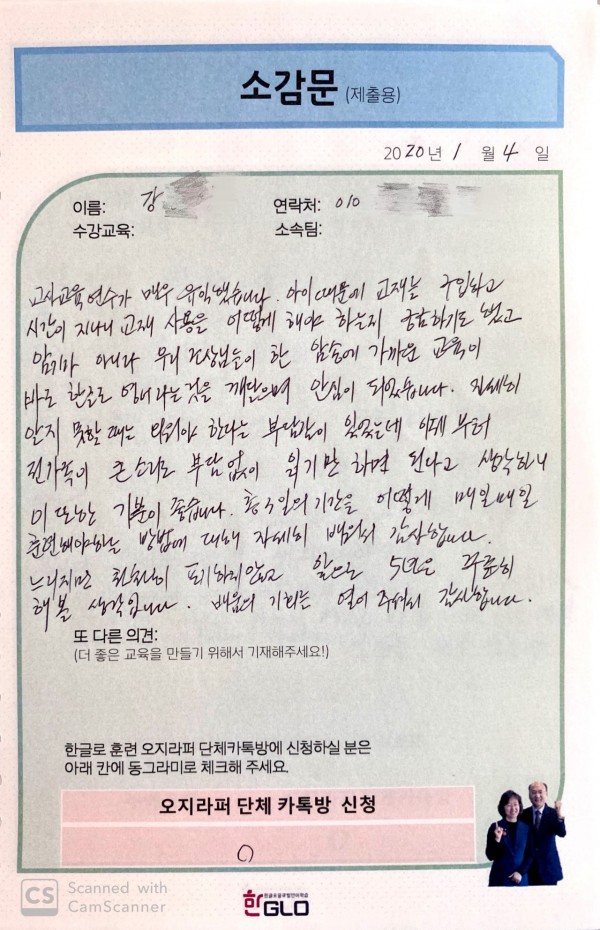 소감문 (제출용)
2020년 1월 4일
이름: 강
연락처: 010
수강교육:
소속팀:
교사교육 연수가 매우 유익했습니다. 아이 때문에 교재를 구입하고
시간이 지나니 교재 사용을 어떻게 해야 하는지 궁금하기도 했고
암기가 아니라 우리 조상님들이 한 암송에 가까운 교육이
바로 한글로 영어라는 것을 깨달으며 안심이 되었습니다. 자세히
알지 못할 때는 외워야 한다는 부담감이 있었는데 이제부터
전가족이 큰 소리로 부담없이 읽기만 하면 된다고 생각하니
이 또한 기분이 좋습니다. 총 3일의 기간을 어떻게 매일매일
훈련해야하는 방법에 대해 자세히 배워서 감사합니다.
느리지만 천천히 포기하지않고 앞으로 5년은 꾸준히
해볼 생각입니다. 배움의 기회를 열어 주셔서 감사합니다.
또 다른 의견:
(더 좋은 교육을 만들기 위해서 기재해주세요!)
한글로 훈련 오지라퍼 단체카톡방에 신청하실 분은
아래 칸에 동그라미로 체크해 주세요.
오지라퍼 단체 카톡방 신청
CS Scanned with
CamScanner
한GLO